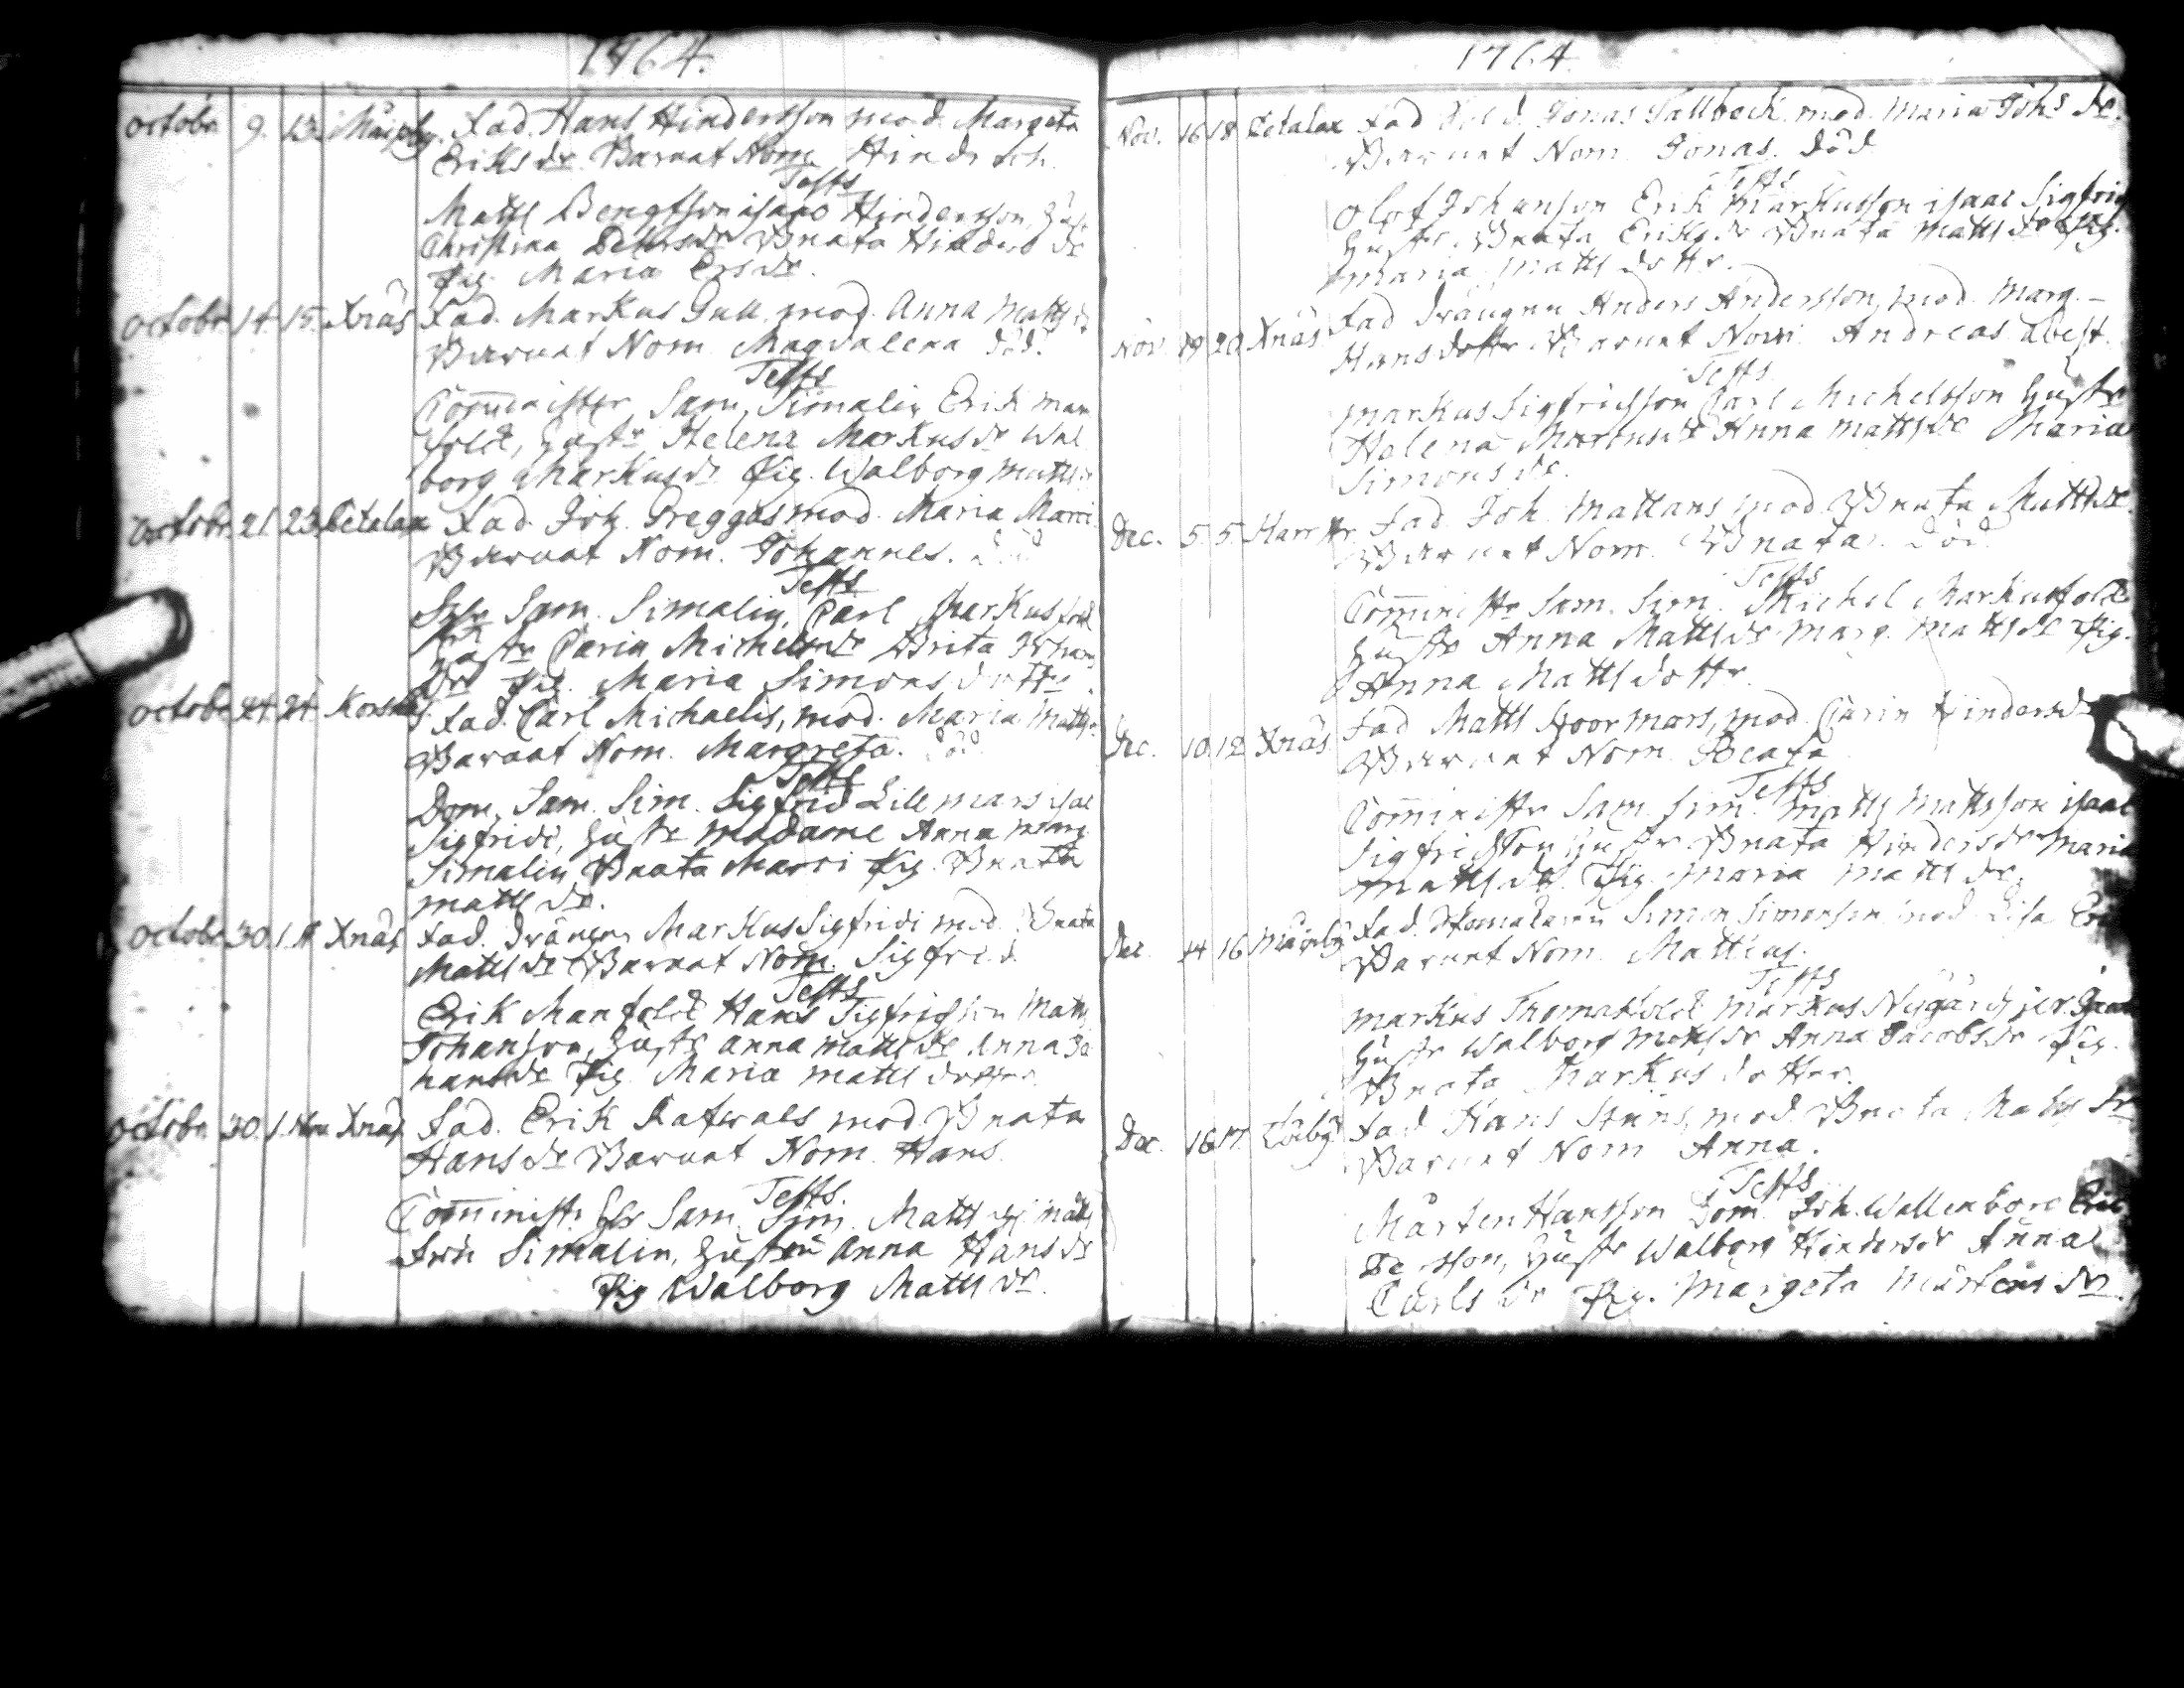 1764.
Octobr 9. 13. Måsby. Fad. Hans Hindersson mod. Margeta
Eriksdr Barnet Nom. Hindrich.
Tests
Matts Bengtsson isaac Hindersson, hust
Christina Petersdr Brita Hinders dr
Pig. Maria Ersdr.
Octobr 14. 15. Xnäs Fad. Markus Gull mod. Anna Matts dr
Barnet Nom. Magdalena död.
Tests
Comminister Sam. Simalin Erik Man
folck, hustr Helena Markusdr Wal
borg Markusdr Pig. Walborg Mattsdr
Octobr. 21 23 Petalax Fad. Joh. Greggas mod. Maria Marci
Barnet Nom. Johannes. död
Tests
Sam. Simalin, Carl Markus
hustr Carin Michelsdr Brita Johans
dr Pig. Maria Simons dottr.
Octobr 24. 24. Korsnäs Fad. Carl Michaelis, mod. Maria Matts
Barnet Nom. Margreta. död
Tests
Dom. Sam. Sim. Sigfrid Lillmars isac
Sigfridi, hustr Madame Anna Marg
Simalin Brita Marci Pig. Brita
Matts dr.
Octobr 30. 1. Xnäs Fad. drängen Markus Sigfridi mod. Brita
Matts dr Barnet Nom. Sigfrid
Tests
Erik Manfolck Hans Sigfridsson Matts
Johanson, hustr anna Matts dr Anna Jo
hans dr Pig. Maria Matts dotter.
Octobr. 30. 1. Nov. Xnäs Fad. Erik Rafwals mod. Brita
Hans dr Barnet Nom. Hans
Tests.
Comministr Sam. Sim. Matts
Simalin, hustru Anna Hans dr
Pig Walborg Matts dr.
1764
Nov. 16 18 Petalax Fad Jonas Sallbeck mod. Maria Johs dr.
Barnet Nom. Jonas. död
Tests
Olof Johanson Erik Markusson isaac Sigfrid
hustr. Brita Eriks dr Brita Matts dr Pig.
Maria Matts dottr.
Nov. 19 20 Xnäs Fad drängen Anders Andersson, mod. Marg. –
Hansdottr Barnet Nom. Andreas
Tests
Markus Sigfridsson Carl Michelsson hustr
Helena Markusdr Anna Mattsdr Maria
Simonsdr.
Dec. 5. 5. Harrstr. Fad Joh. Mattans mod. Brita Mattsdr.
Barnet Nom. Brita. död
Tests
Comministr Sam. Sim. Michel Markusfolck
hustr Anna Matts dr Marg. Matts dr Pig.
Anna Matts dottr.
Dec. 10. 12. Xnäs. Fad Matts Noormars, mod. Carin Hindersdr
Barnet Nom. Beata
Tests
Comministr Sam. Sim. Matts Mattsson isaac
Sigfridsson hustr Brita Hindersdr Maria
Matts dr Pig. Maria Matts dr.
Dec. 14 16 Måsby Fad. Simon Simonson mod. Lisa
Barnet Nom. Mattias.
Tests
Markus Thomasfolck Markus Nygårds
hustr Walborg Matts dr Anna Jacobsdr Pig.
Brita Markus dotter.
Dec. 16 17. Fad Hans mod. Brita Matts dr
Barnet Nom Anna.
Tests
Mårten Hansson Dom. Joh. Wallenborg Eric
Persson, hustr Walborg Hindersdr Anna
Carls dr Pig. Margeta Mårtens dr.